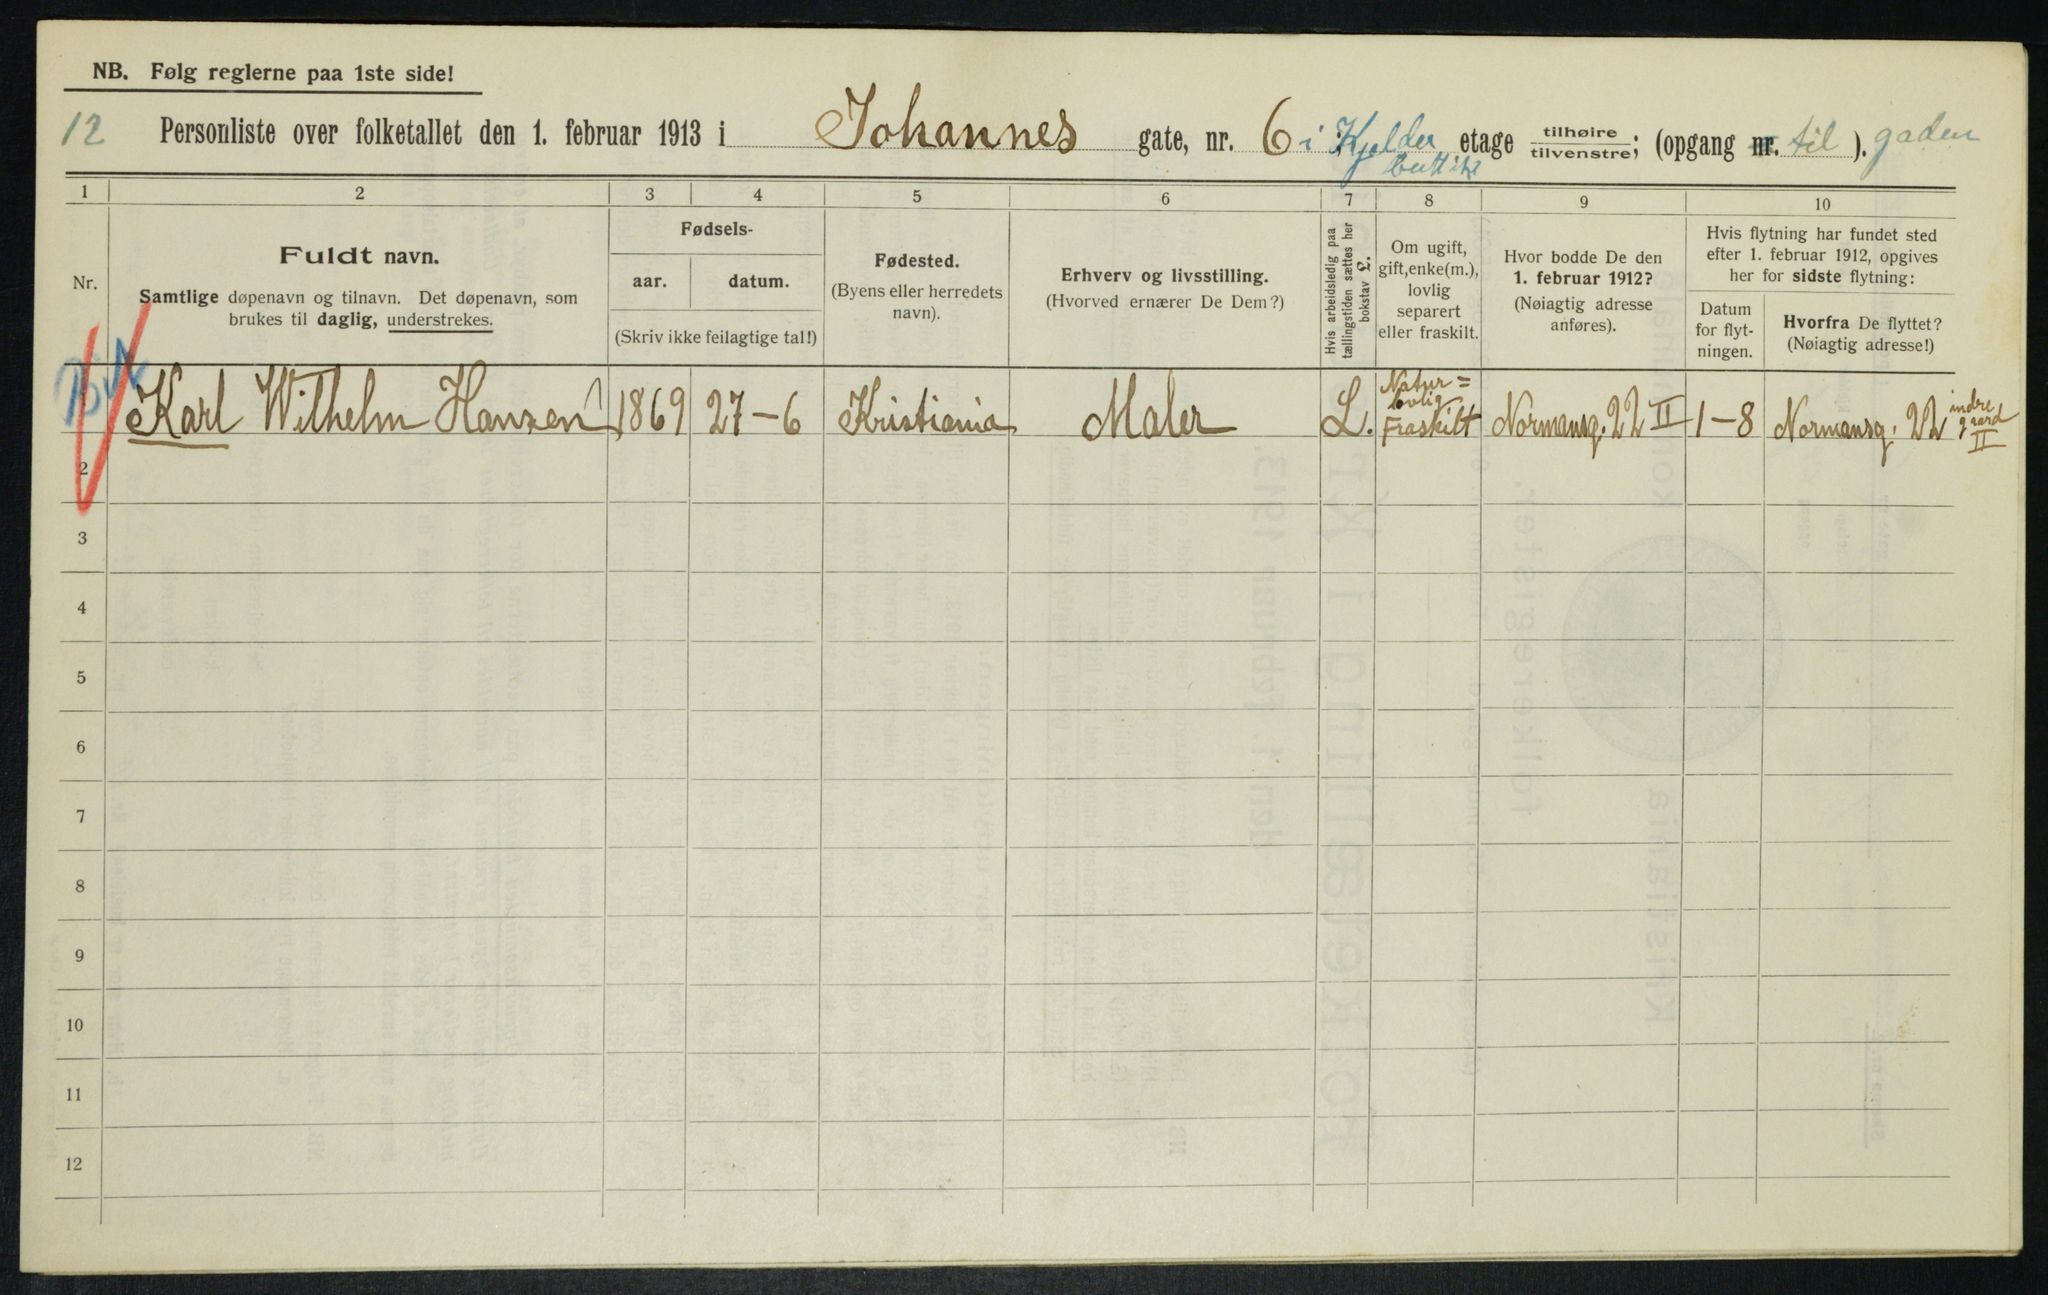 NB. Følg reglerne paa 1ste side!
12 Personliste over folketallet den 1. februar 1913 i Johannes gate, nr. 6 i Kjelder etage tilhøire/tilvenstre; (opgang nr. til ). gaden
butik
1 2 3 4 5 6 7 8 9 10
Nr.
Fuldt navn.
Samtlige døpenavn og tilnavn. Det døpenavn, som
brukes til daglig, understrekes.
Fødsels-
aar. datum.
(Skriv ikke feilagtige tal!)
Fødested.
(Byens eller herredets
navn).
Erhverv og livsstilling.
(Hvorved ernærer De Dem?)
Hvis arbeidsledig paa
tællingstiden sættes her
bokstav L.
Om ugift,
gift, enke(m.),
lovlig
separert
eller fraskilt.
Hvor bodde De den
1. februar 1912?
(Nøiagtig adresse
anføres).
Hvis flytning har fundet sted
efter 1. februar 1912, opgives
her for sidste flytning:
Datum
for flyt-
ningen.
Hvorfra De flyttet?
(Nøiagtig adresse!)
Karl Wilhelm Hansen 1869 27-6 Kristiania Maler L. Natur=
lovlig
Fraskilt Normansg. 22 II 1-8 Normansg. 22 indre
gaard
II
2
3
4
5
6
7
8
9
10
11
12